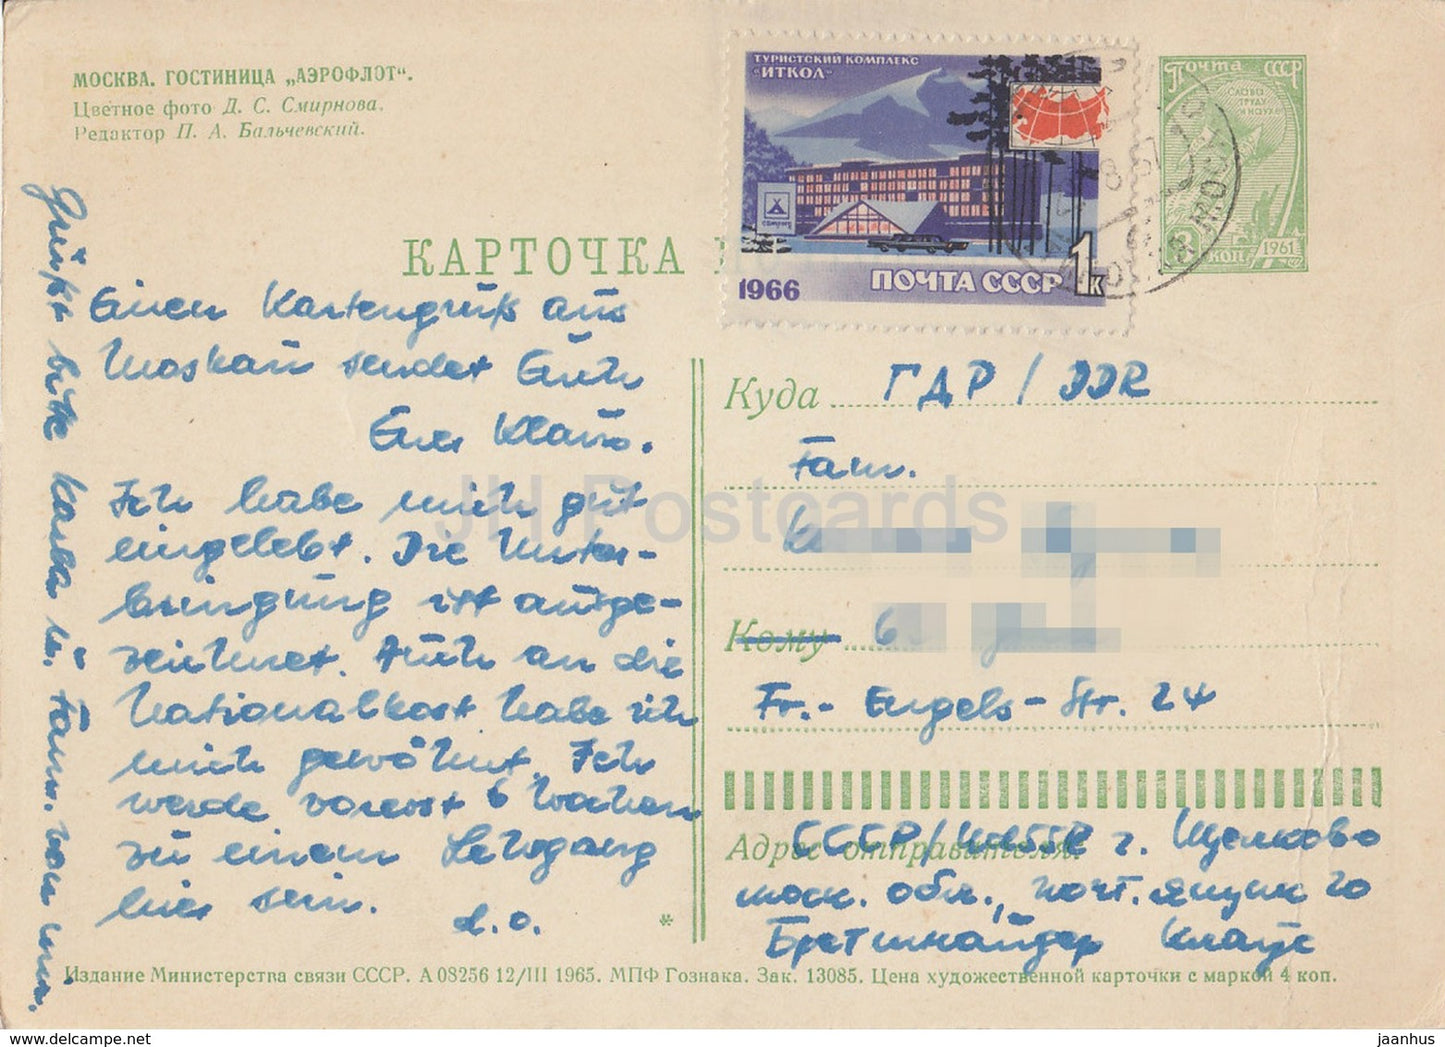 МОСКВА. ГОСТИНИЦА „АЭРОФЛОТ“.
Цветное фото Д. С. Смирнова.
Редактор П. А. Бальчевский.
ТУРИСТСКИЙ КОМПЛЕКС
"ИТКОЛ"
1966
ПОЧТА СССР
1к
Почта СССР
СЛОВО
ТРУДУ
И НАУКЕ
1961
КОП
КАРТОЧКА
Einen Kartengruß aus
Moskau sendet Euch
Euer Klaus.
Ich habe mich gut
eingelebt. Die Unter-
bringung ist ausge-
zeichnet. Auch an die
Nationalkost habe ich
mich gewöhnt. Ich
werde vorerst 6 Wochen
zu einem Lehrgang
hier sein. d.o.
Grüßt bitte Karla u. Fam. von mir.
Куда ГДР / DDR
Fam.
Кому 6
Fr.- Engels-Str. 24
Адрес отправителя:
СССР/ г. Щелково
моск. обл., почт. ящик 20
Бретшнайдер Клаус
*
Издание Министерства связи СССР. А 08256 12/III 1965. МПФ Гознака. Зак. 13085. Цена художественной карточки с маркой 4 коп.
JH Postcards
www.delcampe.net
jaanhus